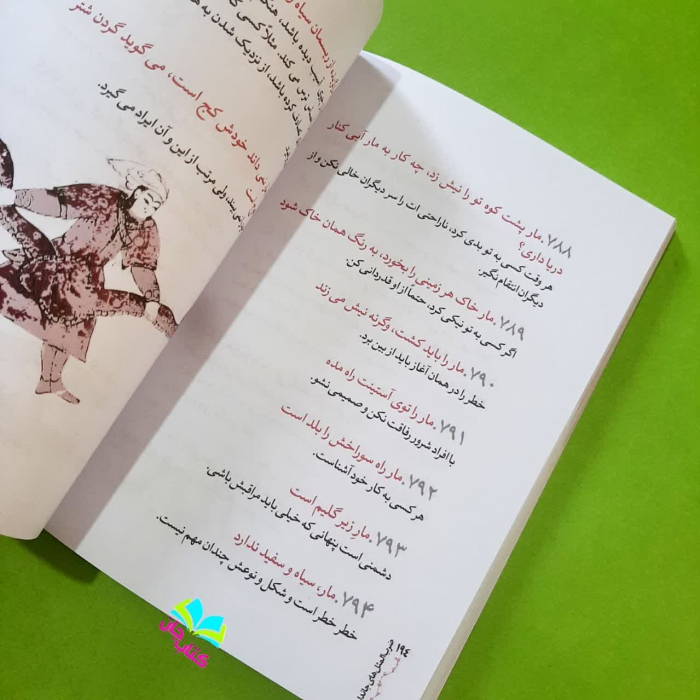 ریسمان سیاه
آسیب دیده باشد،
ترس می کند. مثلاً کسی که
کرده باشد، از نزدیک شدن به
داند خودش کج است، می گوید گردن شتر
ولی مرتب از این و آن ایراد می گیرد.
۷۸۸. مار پشت کوه تو را نیش زد، چه کار به مار آبی کنار
دریا داری؟
هر وقت کسی به تو بدی کرد، ناراحتی ات را سر دیگران خالی نکن و از
دیگران انتقام نگیر.
۷۸۹. مار خاک هر زمینی را بخورد، به رنگ همان خاک شود
اگر کسی به تو نیکی کرد، حتماً از او قدردانی کن.
۷۹۰. مار را باید کشت، وگرنه نیش می زند
خطر را در همان آغاز باید از بین برد.
۷۹۱. مار را توی آستینت راه مده
با افراد شرور رفاقت نکن و صمیمی نشو.
۷۹۲. مار راه سوراخش را بلد است
هر کسی به کار خود آشناست.
۷۹۳. مار زیر گلیم است
دشمنی است پنهانی که خیلی باید مراقبش باشی.
۷۹۴. مار، سیاه و سفید ندارد
خطر خطر است و شکل و نوعش چندان مهم نیست.
۱۹۴ ضرب المثل های
کتاب جان